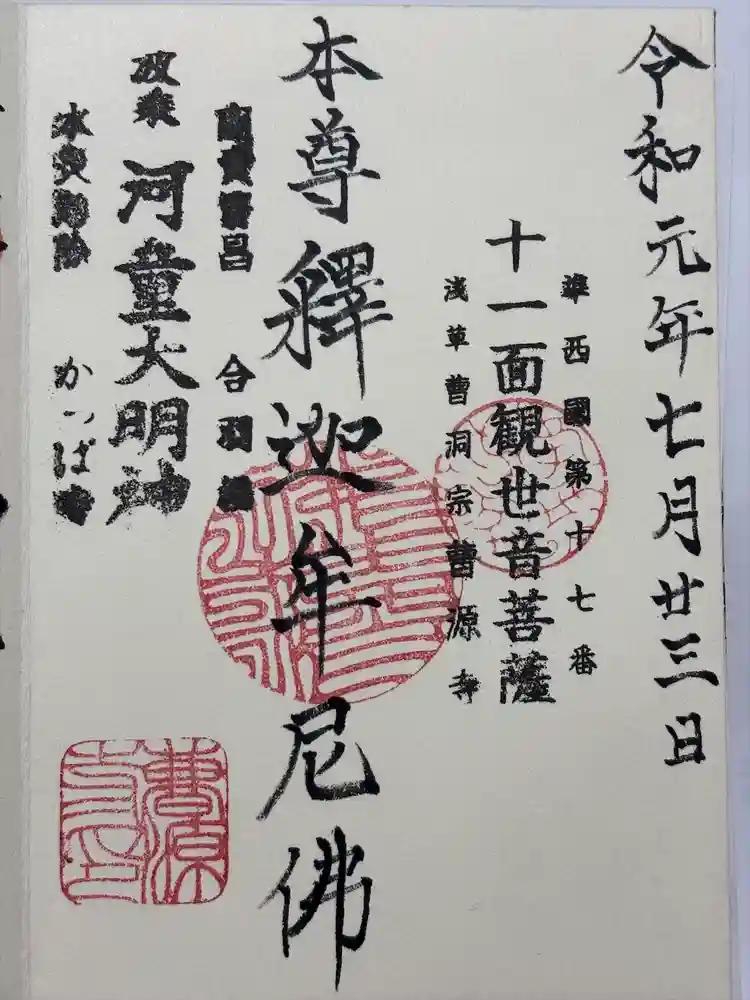 令和元年七月廿三日
準西國第十七番
十一面観世音菩薩
浅草曹洞宗曹源寺
本尊釋迦牟尼佛
商賣繁昌 合羽橋
波乗 河童大明神
水難 かっぱ寺
曹源寺印